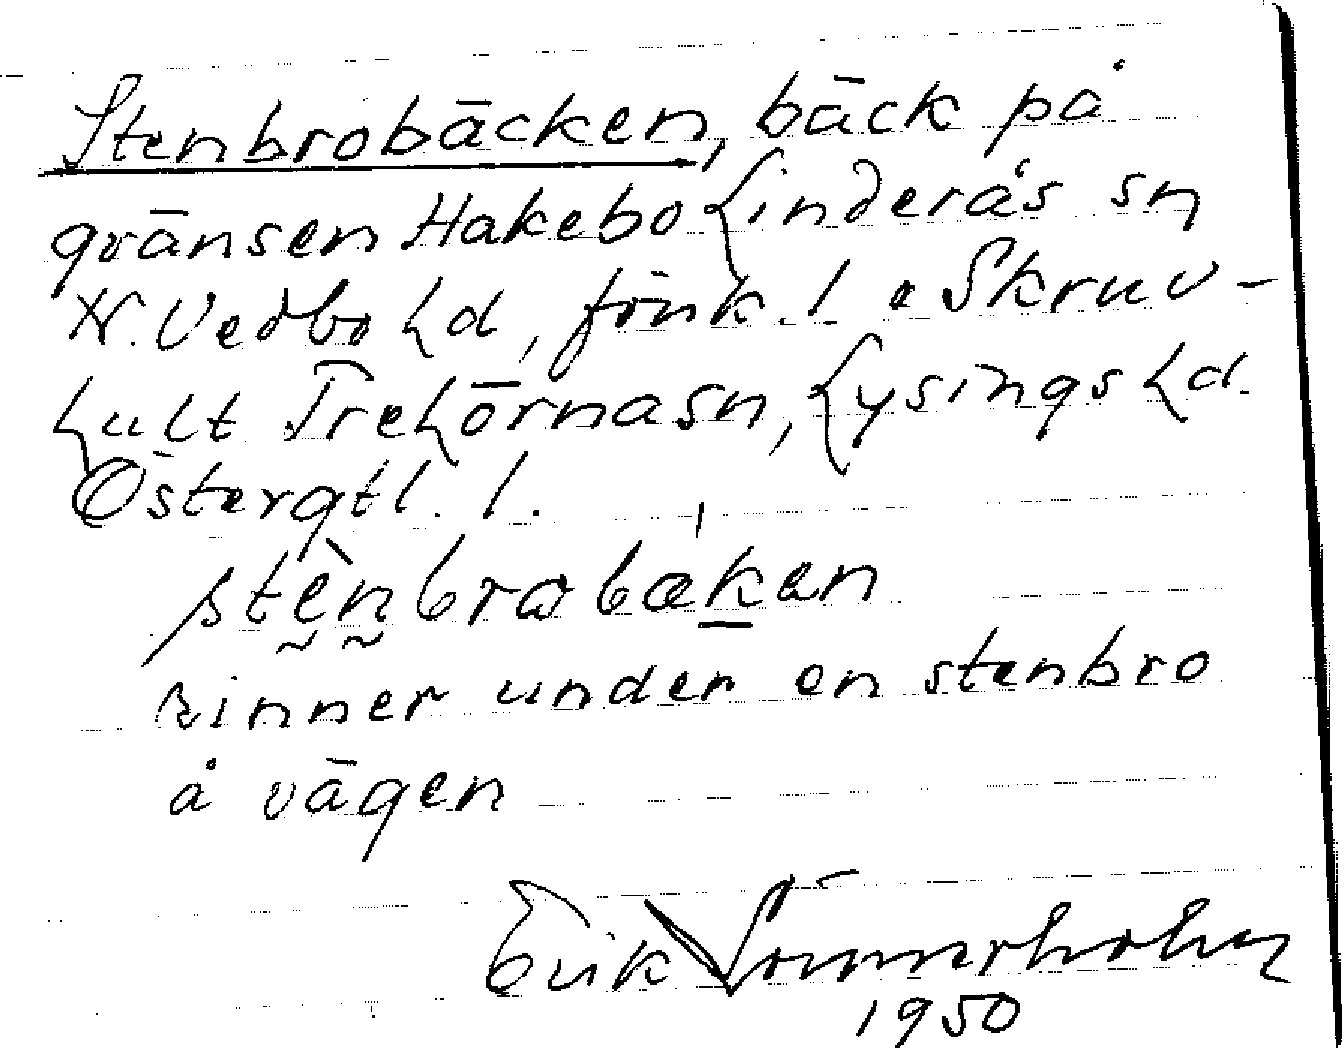 Stenbrobäcken, bäck på
gränsen Hakebo Linderås sn
N. Vedbo hd, Jönk. l. o Skruv-
hult Trehörnasn, Lysings hd.
Östergtl. l.
stènbrobäkan
rinner under en stenbro
å vägen
Erik Lönnerholm
1950